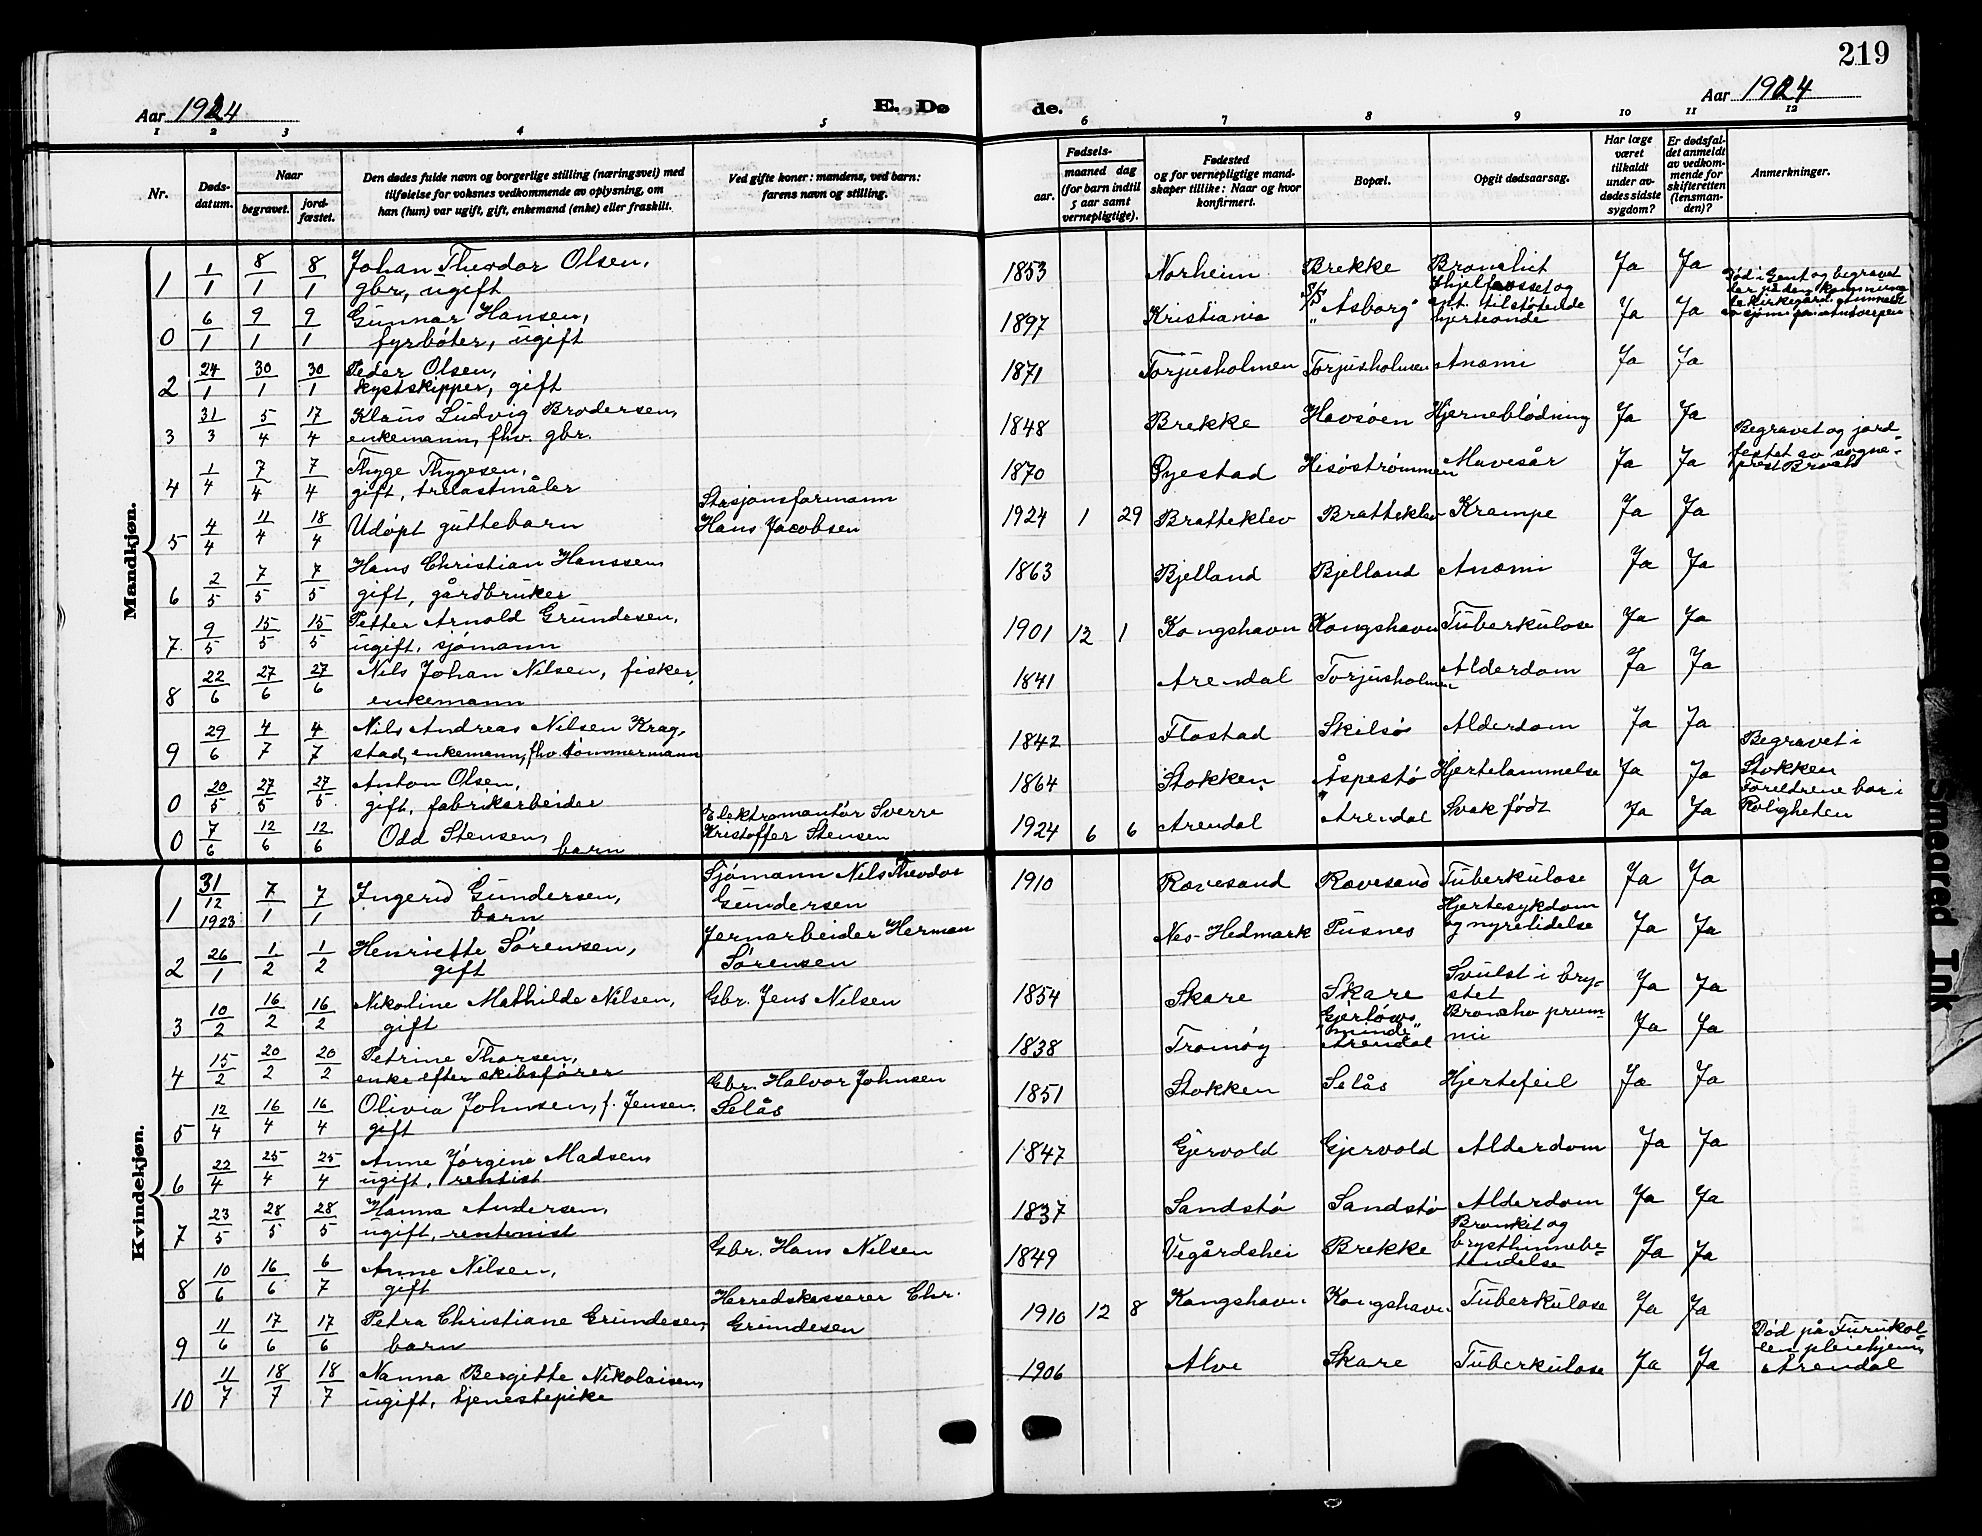 219
Aar 1924
E. Dø
de.
Aar 1924
1 2 3 4 5 6 7 8 9 10 11 12
Nr.
Døds-
datum.
Naar
begravet.
jord-
fæstet.
Den dødes fulde navn og borgerlige stilling (næringsvei) med
tilføielse for voksnes vedkommende av oplysning, om
han (hun) var ugift, gift, enkemand (enke) eller fraskilt.
Ved gifte koner: mandens, ved barn:
farens navn og stilling.
Fødsels-
aar.
maaned dag
(for barn indtil
5 aar samt
vernepligtige).
Fødested
og for vernepligtige mand-
skaper tillike: Naar og hvor
konfirmert.
Bopæl.
Opgit dødsaarsag.
Har læge
været
tilkaldt
under av-
dødes sidste
sygdom?
Er dødsfal-
det anmeldt
av vedkom-
mende for
skifteretten
(lensman-
den)?
Anmerkninger.
Mandkjøn.
1 1/1 8/1 8/1 Johan Theodor Olsen,
gbr, ugift
1853 Norheim Brekke Bronchit Ja Ja
0 6/1 9/1 9/1 Gunnar Hansen,
fyrbøter, ugift
1897 Kristiania S/S "Asborg" hjerteonde Ja Ja
Død i Gent og begravet
2 24/1 30/1 30/1 Peder Olsen,
kystskipper, gift
1871 Torjusholmen Torjusholmen Anæmi Ja Ja
3 31/3 5/4 17/4 Klaus Ludvig Brodersen,
enkemann, fhv. gbr.
1848 Brekke Havsøen Hjerneblødning Ja Ja
4 1/4 7/4 7/4 Thyge Thygesen,
gift, trelastmåler
1870 Øyestad Hisøstrømmen Mavesår Ja Ja
Begravet og jord-
festet av sogne-
prest
5 4/4 11/4 18/4 Udøpt guttebarn
Stasjonsformann
Hans Jacobsen
1924 1 29 Bratteklev Bratteklev Krampe Ja Ja
6 2/5 7/5 7/5 Hans Christian Hanssen,
gift, gårdbruker
1863 Bjelland Bjelland Anæmi Ja Ja
7 9/5 15/5 15/5 Petter Arnold Grundesen,
ugift, sjømann
1901 12 1 Kongshavn Kongshavn Tuberkulose Ja Ja
8 22/6 27/6 27/6 Nils Johan Nilsen, fisker,
enkemann
1841 Arendal Torjusholmen Alderdom Ja Ja
9 29/6 4/7 4/7 Nils Andreas Nilsen Krag-
stad, enkemann, fhv. tømmermann
1842 Flostad Skilsø Alderdom Ja Ja
0 20/5 27/5 27/5 Anton Olsen,
gift, fabrikarbeider
1864 Stokken Åspestø Hjertelammelse Ja Ja
Begravet i
Stokken
0 7/6 12/6 12/6 Odd Stensen,
barn
Elektromontør Sverre
Kristoffer Stensen
1924 6 6 Arendal Arendal Svak født Ja Ja
Foreldrene bor i
Roligheten
Kvindekjøn.
1 31/12 1923 7/1 7/1 Ingerid Gundersen,
barn
Sjømann Nils Theodor
Gundersen
1910 Rævesand Rævesand Tuberkulose Ja Ja
2 26/1 1/2 1/2 Henriette Sørensen,
gift
Jernarbeider Herman
Sørensen
Nes-Hedmark Pusnes Hjertesykdom
og nyrelidelse Ja Ja
3 10/2 16/2 16/2 Nikoline Mathilde Nilsen,
gift
Gbr. Jens Nilsen
1854 Skare Skare Svulst i bry-
stet Ja Ja
4 15/2 20/2 20/2 Petrine Thorsen,
enke efter skibsfører
1838 Tromøy Gjerløws
"minde"
Arendal
Broncho pneu-
mi Ja Ja
5 12/4 16/4 16/4 Olivia Johnsen, f. Jensen,
gift
Gbr. Halvor Johnsen
Selås
1851 Stokken Selås Hjertefeil Ja Ja
6 22/4 25/4 25/4 Anne Jørgine Madsen,
ugift, rentist
1847 Gjervold Gjervold Alderdom Ja Ja
7 23/5 28/5 28/5 Hanna Andersen,
ugift, rentenist
1837 Sandstø Sandstø Alderdom Ja Ja
8 10/6 16/6 6/7 Anne Nilsen,
gift
Gbr. Hans Nilsen
1849 Vegårdshei Brekke Bronkit og
brysthinnebe-
tendelse Ja Ja
9 11/6 17/6 17/6 Petra Christiane Grundesen,
barn
Herredskasserer Chr.
Grundesen
1910 12 8 Kongshavn Kongshavn Tuberkulose Ja Ja
10 11/7 18/7 18/7 Nanna Bergitte Nikolaisen,
ugift, tjenestepike
1906 Alve Skare Tuberkulose Ja Ja
Død på Furukol-
len pleiehjem,
Arendal
Smeared Ink